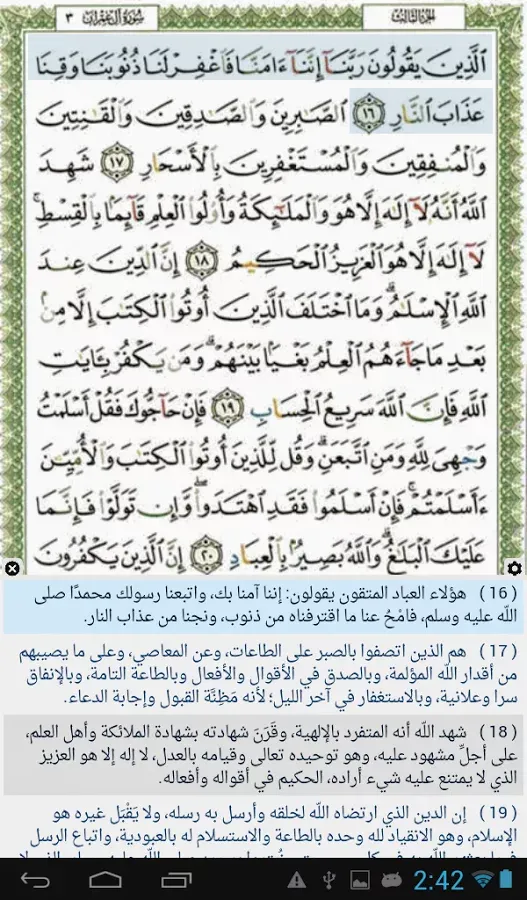 سورة آل عمران ٣ الجزء الثالث
ٱلَّذِينَ يَقُولُونَ رَبَّنَآ إِنَّنَآ ءَامَنَّا فَٱغْفِرْ لَنَا ذُنُوبَنَا وَقِنَا
عَذَابَ ٱلنَّارِ ١٦ ٱلصَّٰبِرِينَ وَٱلصَّٰدِقِينَ وَٱلْقَٰنِتِينَ
وَٱلْمُنفِقِينَ وَٱلْمُسْتَغْفِرِينَ بِٱلْأَسْحَارِ ١٧ شَهِدَ
ٱللَّهُ أَنَّهُۥ لَآ إِلَٰهَ إِلَّا هُوَ وَٱلْمَلَٰٓئِكَةُ وَأُو۟لُوا۟ ٱلْعِلْمِ قَآئِمًۢا بِٱلْقِسْطِ ۚ
لَآ إِلَٰهَ إِلَّا هُوَ ٱلْعَزِيزُ ٱلْحَكِيمُ ١٨ إِنَّ ٱلدِّينَ عِندَ
ٱللَّهِ ٱلْإِسْلَٰمُ ۗ وَمَا ٱخْتَلَفَ ٱلَّذِينَ أُوتُوا۟ ٱلْكِتَٰبَ إِلَّا مِنۢ
بَعْدِ مَا جَآءَهُمُ ٱلْعِلْمُ بَغْيًۢا بَيْنَهُمْ ۗ وَمَن يَكْفُرْ بِـَٔايَٰتِ
ٱللَّهِ فَإِنَّ ٱللَّهَ سَرِيعُ ٱلْحِسَابِ ١٩ فَإِنْ حَآجُّوكَ فَقُلْ أَسْلَمْتُ
وَجْهِىَ لِلَّهِ وَمَنِ ٱتَّبَعَنِ ۗ وَقُل لِّلَّذِينَ أُوتُوا۟ ٱلْكِتَٰبَ وَٱلْأُمِّيِّـۧنَ
ءَأَسْلَمْتُمْ ۚ فَإِنْ أَسْلَمُوا۟ فَقَدِ ٱهْتَدَوا۟ ۖ وَّإِن تَوَلَّوْا۟ فَإِنَّمَا
عَلَيْكَ ٱلْبَلَٰغُ ۗ وَٱللَّهُ بَصِيرٌۢ بِٱلْعِبَادِ ٢٠ إِنَّ ٱلَّذِينَ يَكْفُرُونَ
(16) هؤلاء العباد المتقون يقولون: إننا آمنا بك، واتبعنا رسولك محمدًا صلى
الله عليه وسلم، فامْحُ عنا ما اقترفناه من ذنوب، ونجنا من عذاب النار.
(17) هم الذين اتصفوا بالصبر على الطاعات، وعن المعاصي، وعلى ما يصيبهم
من أقدار الله المؤلمة، وبالصدق في الأقوال والأفعال وبالطاعة التامة، وبالإنفاق
سرا وعلانية، وبالاستغفار في آخر الليل؛ لأنه مَظِنَّة القبول وإجابة الدعاء.
(18) شهد الله أنه المتفرد بالإلهية، وقَرَنَ شهادته بشهادة الملائكة وأهل العلم،
على أجلِّ مشهود عليه، وهو توحيده تعالى وقيامه بالعدل، لا إله إلا هو العزيز
الذي لا يمتنع عليه شيء أراده، الحكيم في أقواله وأفعاله.
(19) إن الدين الذي ارتضاه الله لخلقه وأرسل به رسله، ولا يَقْبَل غيره هو
الإسلام، وهو الانقياد لله وحده بالطاعة والاستسلام له بالعبودية، واتباع الرسل
2:42